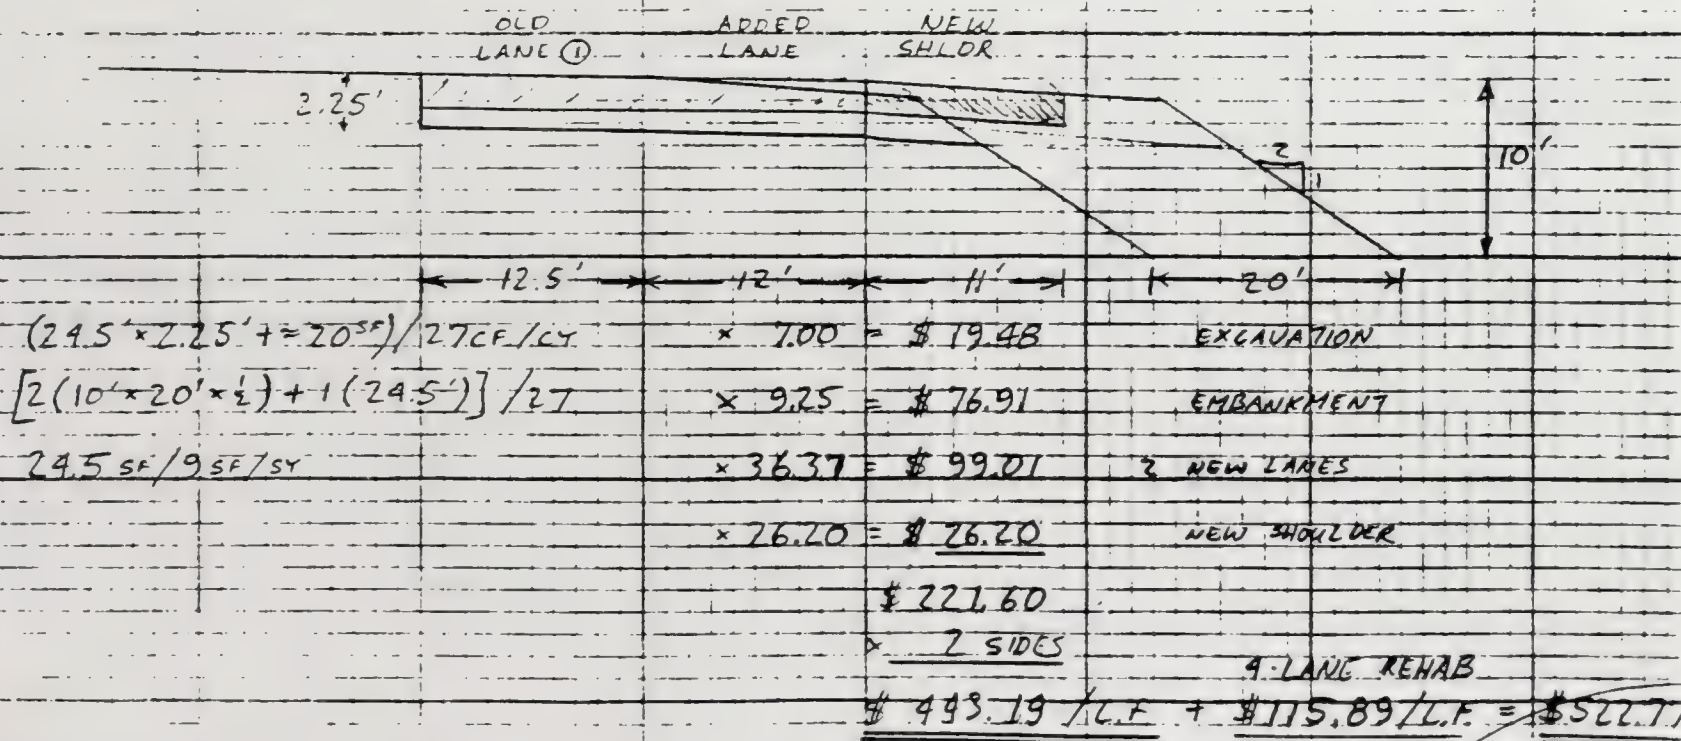 OLD ADDED NEW
LANE ① LANE SHLDR
2.25'
2
1
10'
12.5' 12' 11' 20'
(24.5' × 2.25' + ≈ 20 SF) / 27 CF/CY × 7.00 = $ 19.48 EXCAVATION
[2(10' × 20' × ½) + 1(24.5')] / 27 × 9.25 = $ 76.91 EMBANKMENT
24.5 SF / 9 SF/SY × 36.37 = $ 99.01 2 NEW LANES
× 26.20 = $ 26.20 NEW SHOULDER
$ 221.60
× 2 SIDES
4-LANE REHAB
$ 443.19 / L.F. + $115.89 / L.F. =